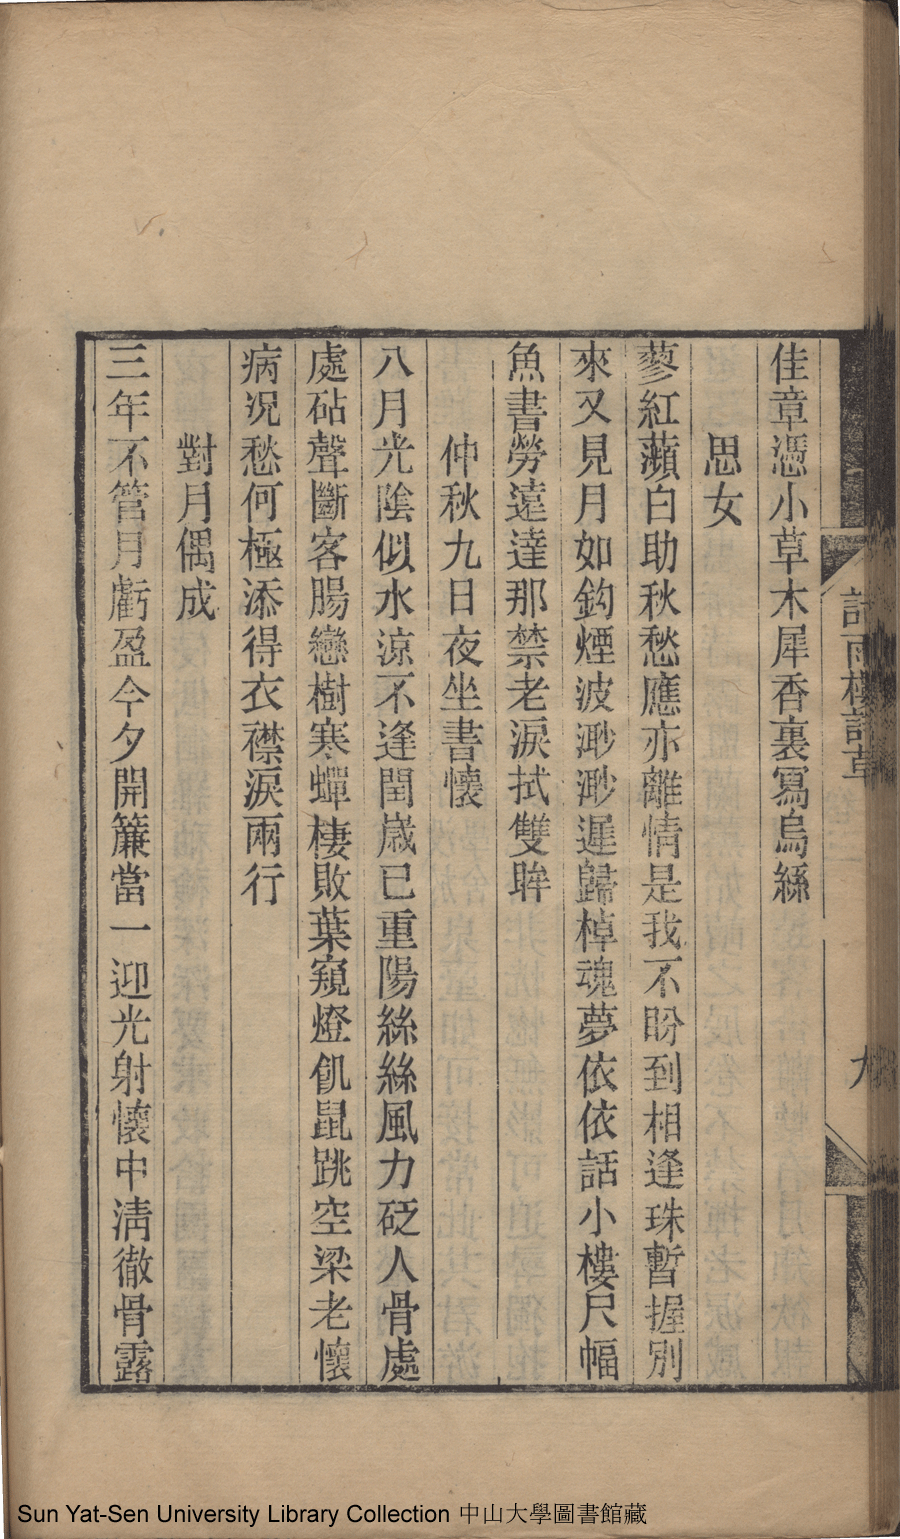 佳章憑小草木犀香裏寫烏絲
思女
蓼紅蘋白助秋愁應亦離情是我不盼到相逢珠暫握別
來又見月如鈎煙波渺渺遲歸棹魂夢依依話小樓尺幅
魚書勞遠達那禁老淚拭雙眸
仲秋九日夜坐書懷
八月光陰似水涼不逢閏歲已重陽絲絲風力砭人骨處
處砧聲斷客腸戀樹寒蟬棲敗葉窺燈飢鼠跳空梁老懷
病况愁何極添得衣襟淚兩行
對月偶成
三年不管月虧盈今夕開簾當一迎光射懷中淸徹骨露
雨樓詩草
九
Sun Yat-Sen University Library Collection 中山大學圖書館藏